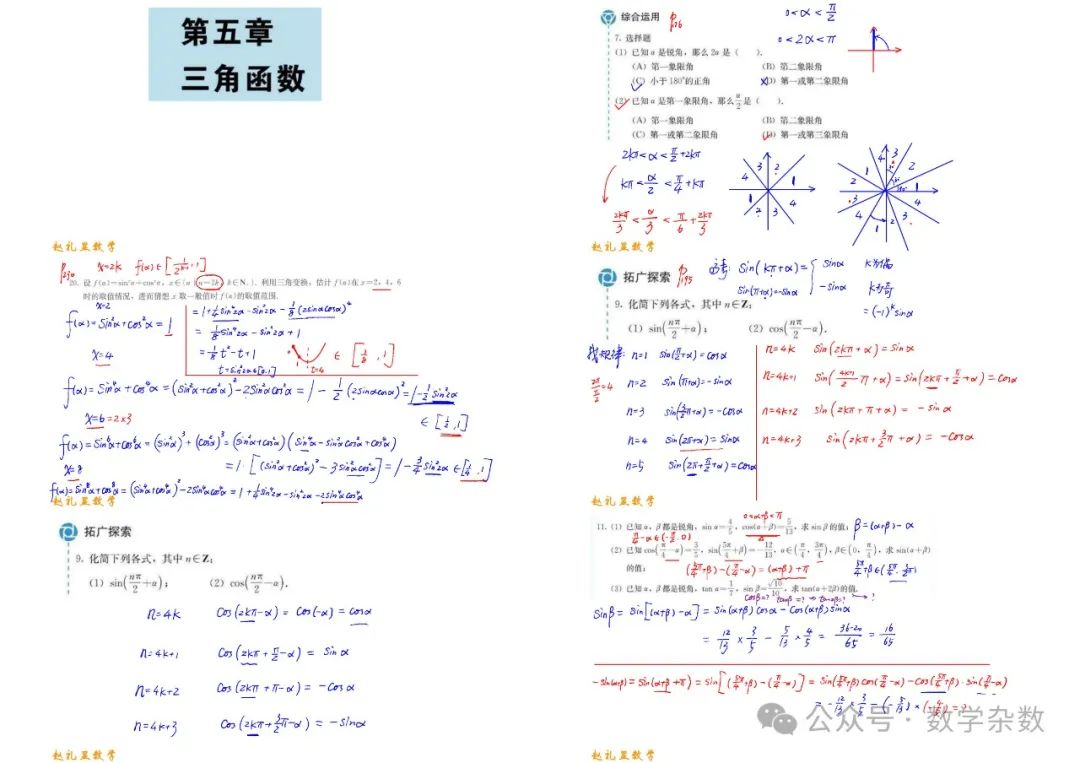 第五章
三角函数
赵礼显数学
x=2k f(x)∈[1/2^(k-1), 1]
20. 设 f(α)=sinˣα+cosˣα, x∈{n|n=2k, k∈N₊}. 利用三角变换, 估计 f(α)在 x=2, 4, 6
时的取值情况, 进而猜想 x 取一般值时 f(α)的取值范围.
x=2
f(α)=sin²α+cos²α=1
=1+1/4 sin⁴2α-sin²2α-1/8(2sinαcosα)⁴
=1/8 sin⁴2α-sin²2α+1
=1/8 t²-t+1 ∈[1/8, 1]
t=sin²2α∈[0,1] t=4
x=4
f(α)=sin⁴α+cos⁴α=(sin²α+cos²α)²-2sin²αcos²α=1-1/2(2sinαcosα)²=1-1/2 sin²2α
∈[1/2, 1]
x=6=2×3
f(α)=sin⁶α+cos⁶α=(sin²α)³+(cos²α)³=(sin²α+cos²α)(sin⁴α-sin²αcos²α+cos⁴α)
=1·[(sin²α+cos²α)²-3sin²αcos²α]=1-3/4 sin²2α∈[1/4, 1]
x=8
f(α)=sin⁸α+cos⁸α=(sin⁴α+cos⁴α)²-2sin⁴αcos⁴α=1+1/4 sin⁴2α-sin²2α-2sin⁴αcos⁴α
赵礼显数学
拓广探索
9. 化简下列各式, 其中 n∈Z:
(1) sin(nπ/2+α); (2) cos(nπ/2-α).
n=4k cos(2kπ-α)=cos(-α)=cosα
n=4k+1 cos(2kπ+π/2-α)=sinα
n=4k+2 cos(2kπ+π-α)=-cosα
n=4k+3 cos(2kπ+3/2π-α)=-sinα
赵礼显数学
综合运用
0<α<π/2
7. 选择题
0<2α<π
(1) 已知 α 是锐角, 那么 2α 是( ).
(A) 第一象限角 (B) 第二象限角
(C) 小于 180°的正角 (D) 第一或第二象限角
(2) 已知 α 是第一象限角, 那么 α/2 是( ).
(A) 第一象限角 (B) 第二象限角
(C) 第一或第二象限角 (D) 第一或第三象限角
2kπ<α<π/2+2kπ
kπ<α/2<π/4+kπ
2kπ/3<α/3<π/6+2kπ/3
赵礼显数学
拓广探索 P195
sin(kπ+α)= sinα k为偶
sin(π+α)=-sinα -sinα k为奇
=(-1)ᵏsinα
9. 化简下列各式, 其中 n∈Z:
(1) sin(nπ/2+α); (2) cos(nπ/2-α).
找规律: n=1 sin(π/2+α)=cosα
2π/(π/2)=4
n=2 sin(π+α)=-sinα
n=3 sin(3/2π+α)=-cosα
n=4 sin(2π+α)=sinα
n=5 sin(2π+π/2+α)=cosα
n=4k sin(2kπ+α)=sinα
n=4k+1 sin((4k+1)/2 π+α)=sin(2kπ+π/2+α)=cosα
n=4k+2 sin(2kπ+π+α)=-sinα
n=4k+3 sin(2kπ+3/2π+α)=-cosα
赵礼显数学
0<α+β<π
11. (1) 已知 α, β都是锐角, sin α=4/5, cos(α+β)=5/13, 求 sin β的值; β=(α+β)-α
π/4-α∈(-π/2, 0)
(2) 已知 cos(π/4-α)=3/5, sin(5π/4+β)=-12/13, α∈(π/4, 3π/4), β∈(0, π/4), 求 sin(α+β)
的值; (5π/4+β)-(π/4-α)=(α+β)+π 5π/4+β∈(5π/4, 3/2π)
(3) 已知 α, β都是锐角, tan α=1/7, sin β=√10/10, 求 tan(α+2β)的值.
sinβ=sin[(α+β)-α]=sin(α+β)cosα-cos(α+β)sinα
=12/13×3/5-5/13×4/5=(36-20)/65=16/65
-sin(α+β)=sin(α+β+π)=sin[(5π/4+β)-(π/4-α)]=sin(5π/4+β)cos(π/4-α)-cos(5π/4+β)·sin(π/4-α)
=-12/13×3/5-(-5/13)×(-4/5)=?
公众号·数学杂数
赵礼显数学